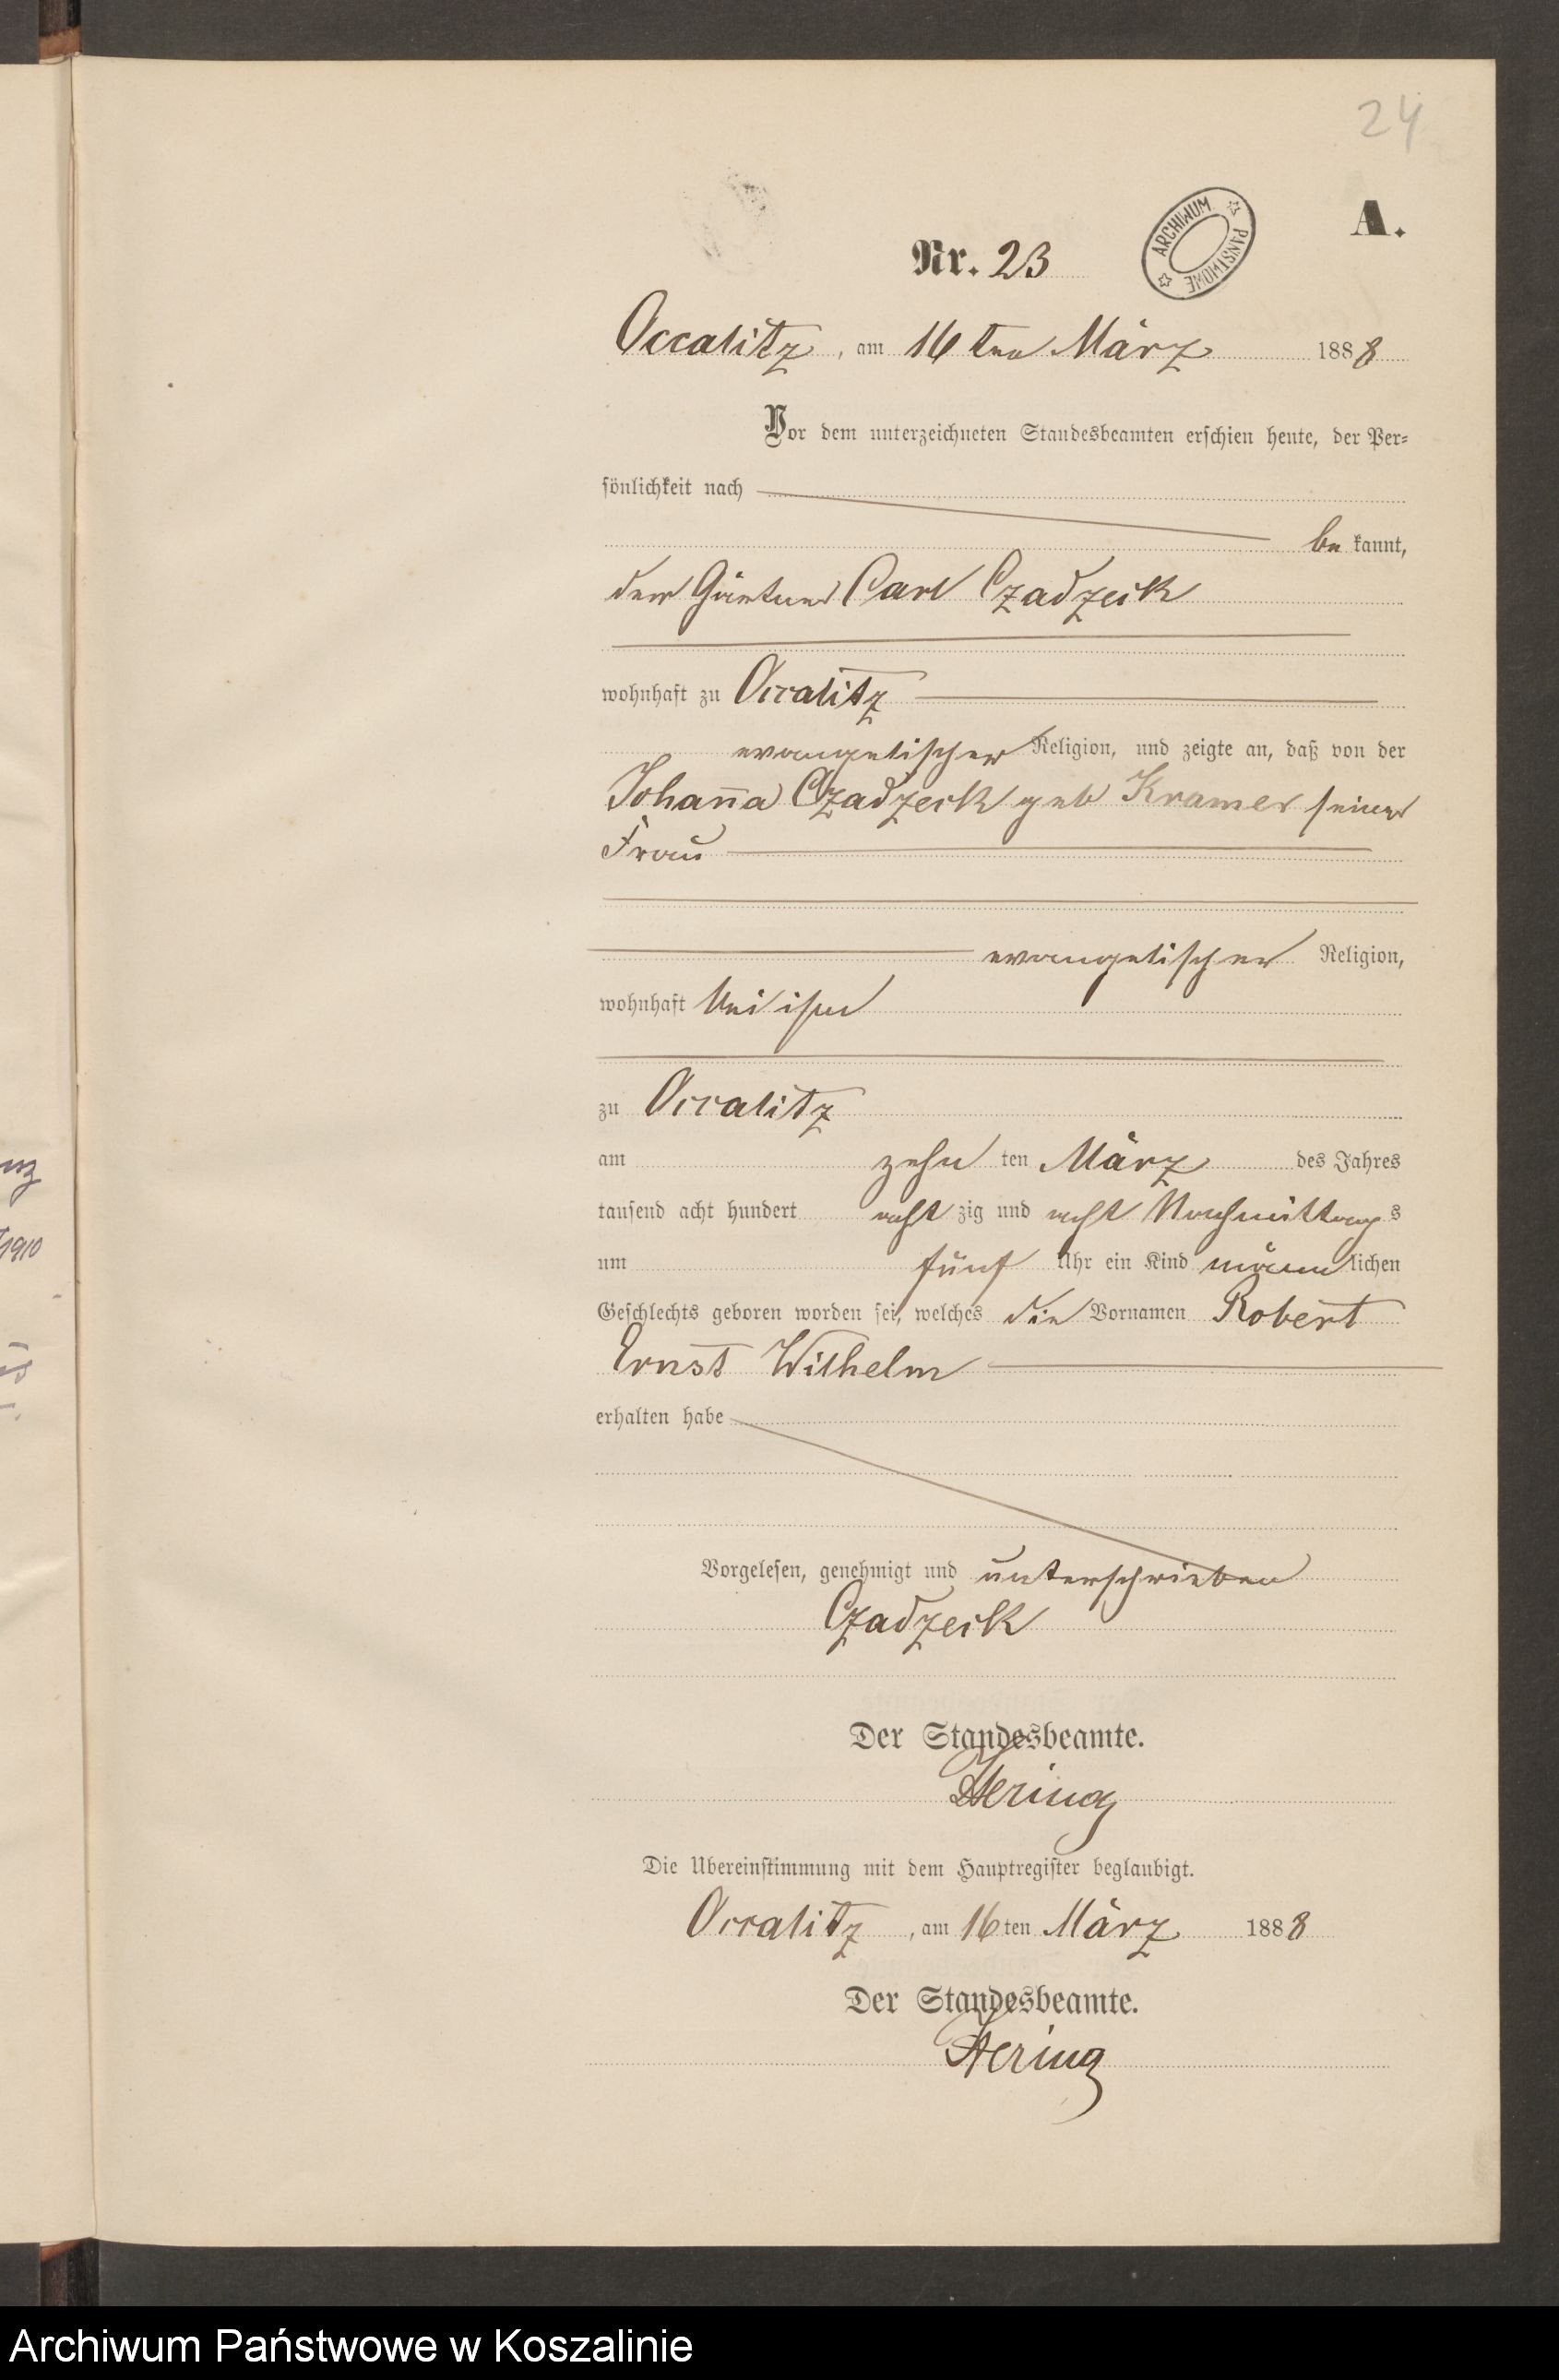 24
A.
ARCHIWUM PAŃSTWOWE
Nr. 23
Occalitz, am 16ten März 1888
Vor dem unterzeichneten Standesbeamten erschien heute, der Per=
sönlichkeit nach
bekannt,
der Gärtner Carl Czadzeck
wohnhaft zu Occalitz
evangelischer Religion, und zeigte an, daß von der
Johanna Czadzeck geb Kramer seiner
Frau
evangelischer Religion,
wohnhaft bei ihm
zu Occalitz
am zehnten März des Jahres
tausend acht hundert achtzig und acht Nachmittags
um fünf Uhr ein Kind männlichen
Geschlechts geboren worden sei, welches die Vornamen Robert
Ernst Wilhelm
erhalten habe
Vorgelesen, genehmigt und unterschrieben
Czadzeck
Der Standesbeamte.
Hering
Die Übereinstimmung mit dem Hauptregister beglaubigt.
Occalitz, am 16ten März 1888
Der Standesbeamte.
Hering
1910
Archiwum Państwowe w Koszalinie